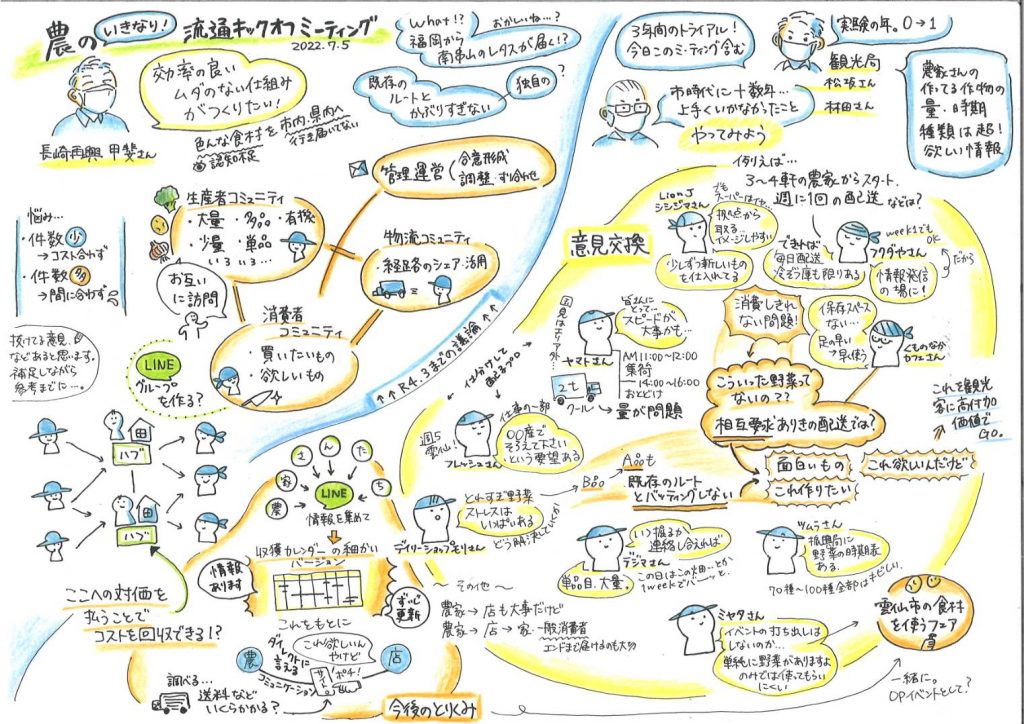 農の
いきなり!
流通キックオフミーティング
2022.7.5
効率の良い
ムダのない仕組み
がつくりたい!
長崎西興 甲斐さん
色んな食材を市内、県内へ
行き届いてない
認知不足
What!?
おかしいね…?
福岡から
南串山のレタスが届く!?
既存の
ルートと
かぶりすぎない
独自の
?
3年間のトライアル!
今日このミーティング含む
実験の年。0→1
観光局
松坂さん
材田さん
市時代に十数年…
上手くいかなかったこと
やってみよう
農家さんの
作ってる作物の
量・時期
種類は超!
欲しい情報
管理運営
合意形成
調整・すり合わせ
生産者コミュニティ
・大量・多品・有機
・少量・単品
いろいろ…
物流コミュニティ
・経路のシェア・活用
お互い
に訪問
消費者
コミュニティ
・買いたいもの
・欲しいもの
↑↑R4.3までの議論↑↑
悩み…
・件数少
→コスト合わず
・件数多
→間に合わず
抜けてる意見
などあると思います。
補足しながら
参考までに…。
LINE
グループ
を作る?
ハブ
ハブ
ここへの対価を
払うことで
コストを回収できる!?
意見交換
例えば…
3~4軒の農家からスタート。
週に1回の配送などは?
LionJ
シシジマさん
でも
スーパーはイヤ…
拠点から
取る…
イメージしやすい
少しずつ新しいもの
を仕入れてる
できれば
毎日配送
冷ぞう庫も限りある
フクダやさん
week1でも
OK
だから
情報発信
の場に!
消費しきれ
ない問題!
保存スペース
ない…
足の早い
→早く使う
くものなか
カフェさん
皆さんに
とって…
スピードが
大事かも…
ヤマトさん
AM11:00~12:00
集荷
14:00~16:00
おとどけ
2t
クール
→量が問題
仕分けして
配るプロ
こういった野菜って
ないの??
相互要求ありきの配送では?
これを観光
客に高付加
価値で
GO。
面白いもの
これ欲しいんだけど
これ作りたい
週5
雲仙!
フレッシュさん
仕事の一部
〇〇産で
そろえて下さい
という要望ある
既存のルート
とバッティングしない
とれすぎ野菜
ストレスは
いっぱいある
どう解決していくか
デイリーショップもりさん
農
家
さ
ん
た
ち
LINE
情報を集めて
収穫カレンダーの細かい
バージョン
情報
あります
ずっと
更新
これをもとに
いつ掘るか
連絡し合えれば
デジマさん
単品目、大量。
この日はこの畑…とか
1weekでバーッと。
ツムラさん
振興局に
野菜の時期表
ある
70種~100種全部はキビしい
~その他~
農家→店も大事だけど
農家→店→家 一般消費者
エンドまで届けるのも大切
ミヤタさん
イベントの打ち出しは
しないのか…
単純に野菜がありますよ
のみでは使ってもらい
にくい
雲仙市の食材
を使うフェア
一緒に。
OPイベントとして?
ダイレクトに
言える
これ欲しいん
やけど
農
コミュニケーション
サイト
ポチ!
店
調べる…
送料など
いくらかかる?
今後のとりくみ